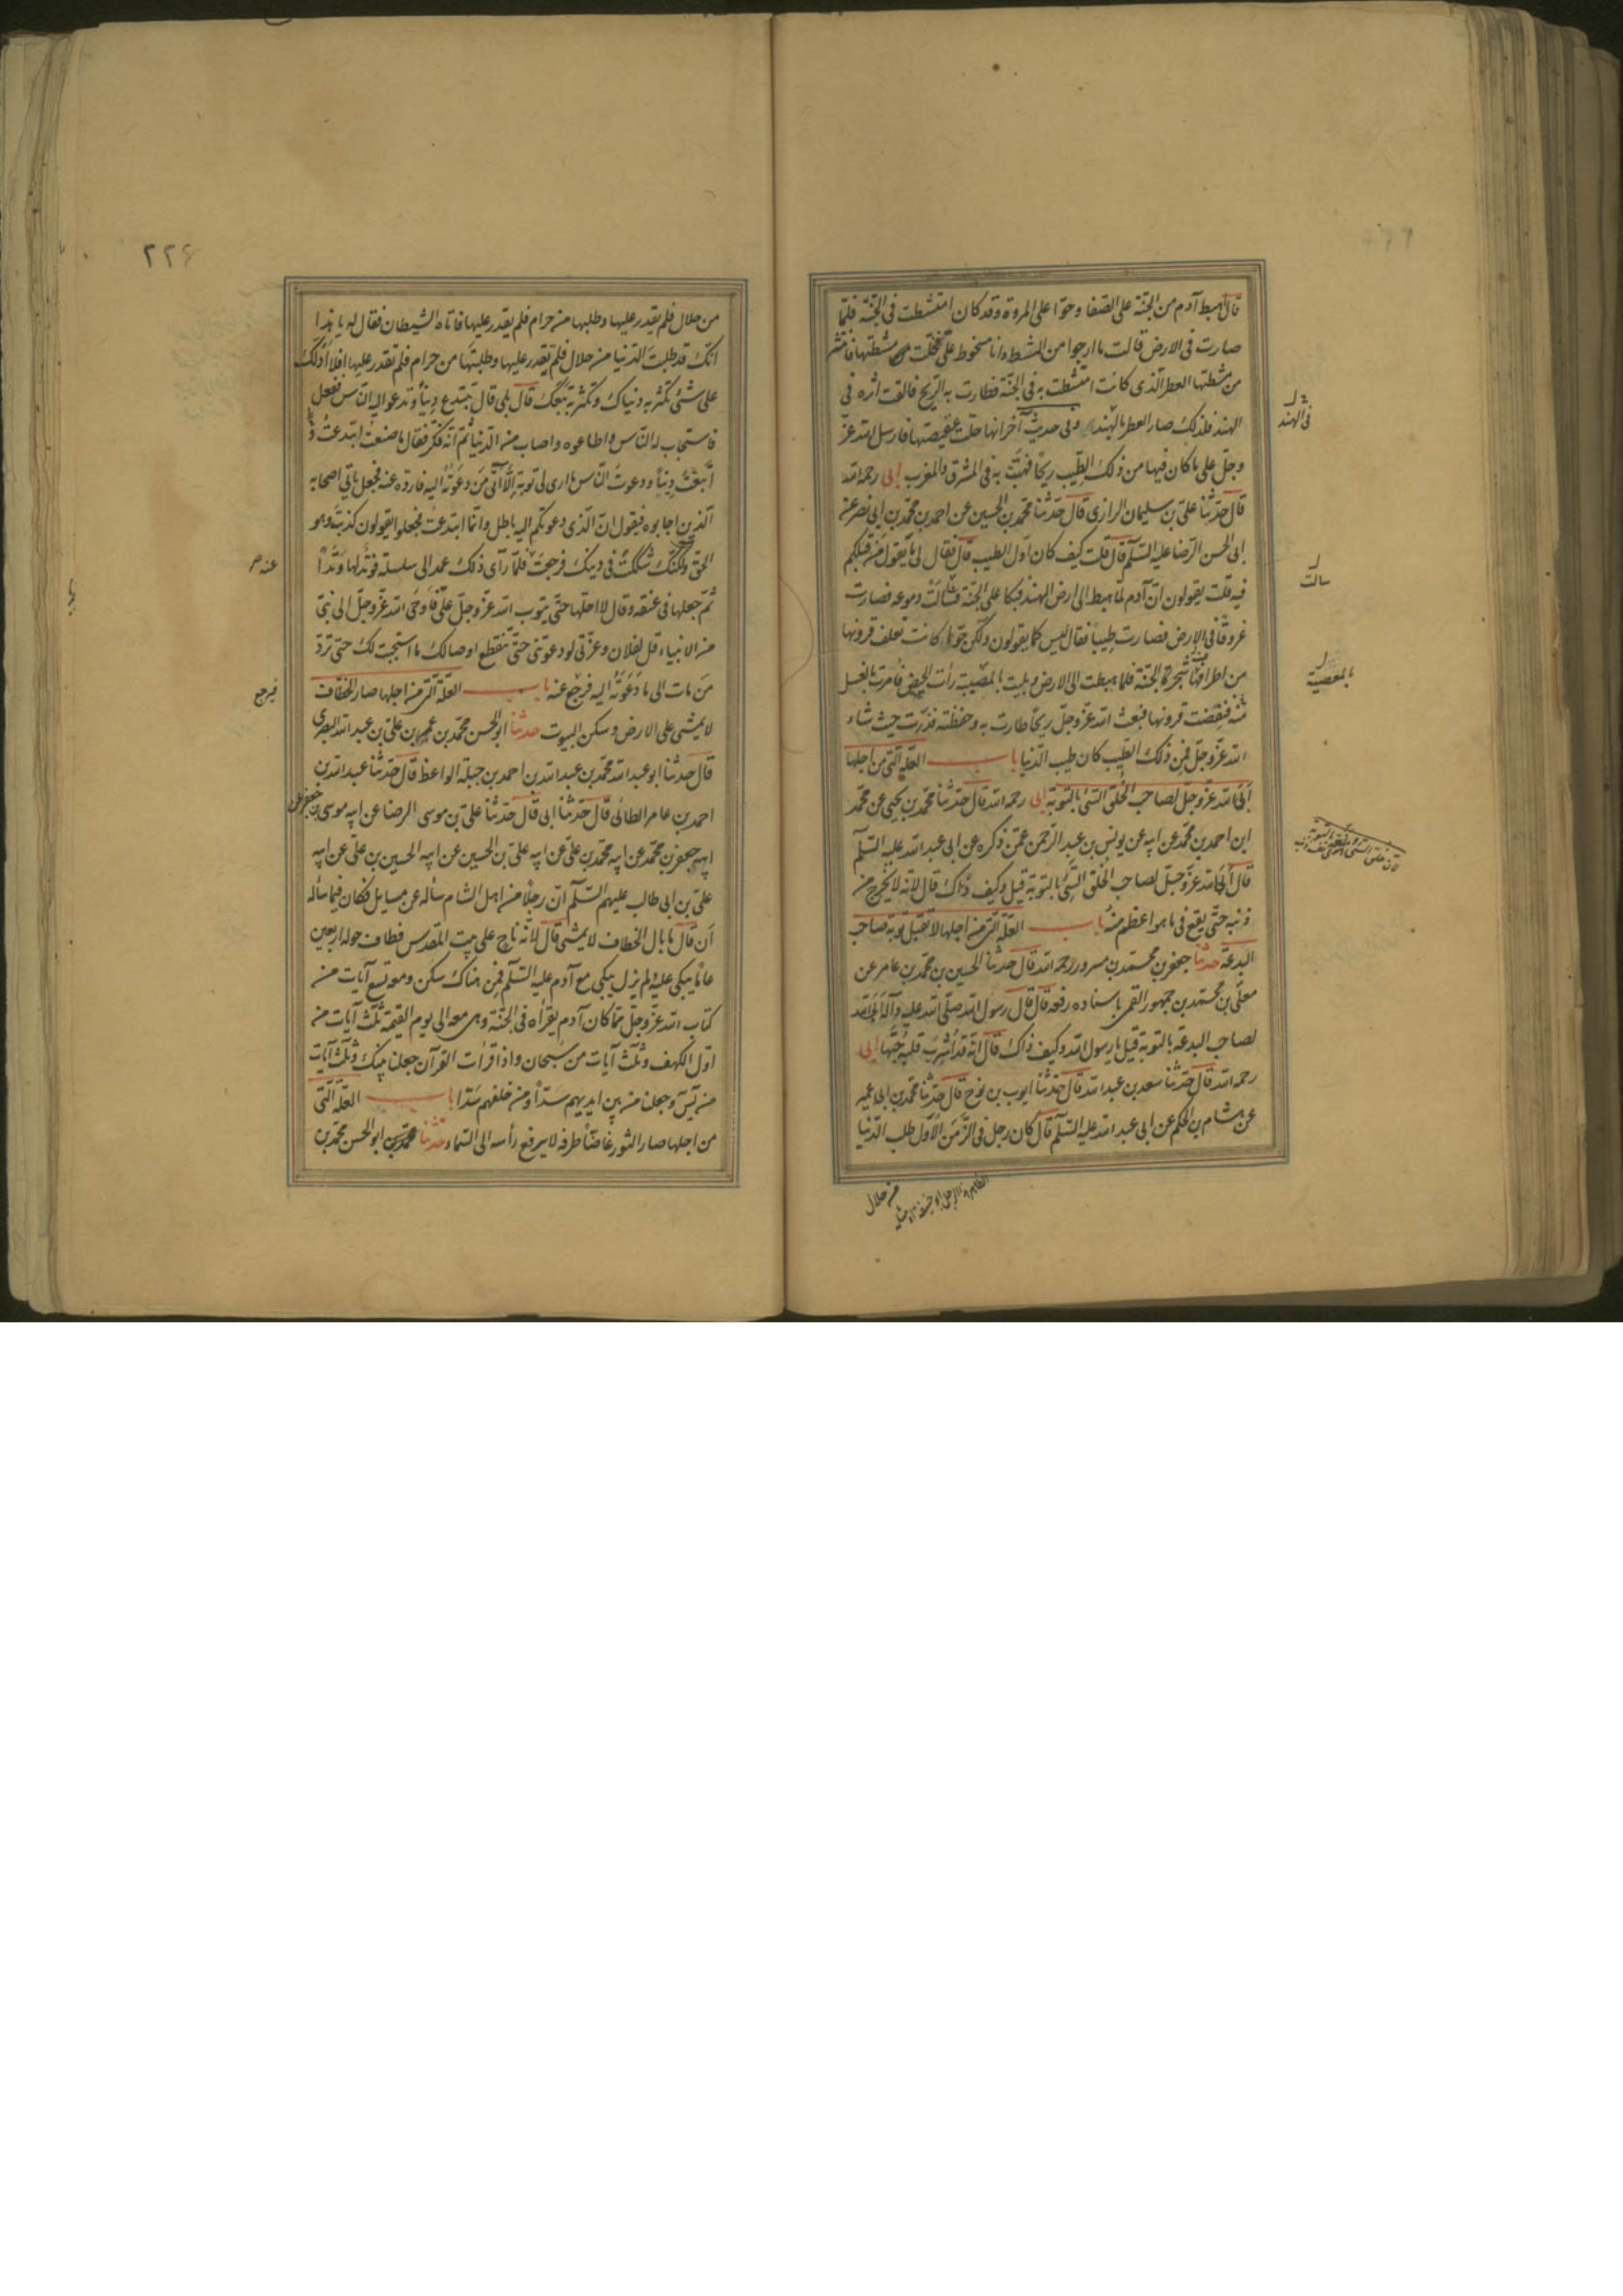 قال هبط آدم من الجنة على الصفا وحوا على المروة وقد كان امتشطت فى الجنة فلما
صارت فى الارض قالت ما ارجوا من المشط وانا مسخوط على فحلت مشطتها فانتشر
من مشطتها العطر الذى كانت امتشطت به فى الجنة فطارت به الريح فالقت اثره فى
الهند فلذلك صار العطر بالهند وفى حديث آخر انها حلت عقيصتها فارسل الله عز
وجل على ما كان فيها من ذلك الطيب ريحا فهبت به فى المشرق والمغرب ابى رحمه الله
قال حدثنا على بن سليمان الرازى قال حدثنا محمد بن الحسين عن احمد بن محمد بن ابى نصر عن
ابى الحسن الرضا عليه السلم قال قلت كيف كان اول الطيب قال فقال لى ما يقول من قبلكم
فيه قلت يقولون ان آدم لما هبط الى ارض الهند فبكا على الجنة فسالت دموعه فصارت
عروقا فى الارض فصارت طيبا فقال ليس كما يقولون ولكن حوا كانت تغلف قرونها
من اطراف شجرة الجنة فلما هبطت الى الارض وبليت بالمصيبة رأت الحيض فامرت بالغسل
فنقضت قرونها فبعث الله عز وجل ريحا طارت به وخفظته فذرت حيث شاء
الله عز وجل فمن ذلك الطيب كان طيب الدنيا باب العلة التى من اجلها
ابى الله عز وجل لصاحب الخلق السئ بالتوبة ابى رحمه الله قال حدثنا محمد بن يحيى عن محمد
ابن احمد بن محمد عن ابيه عن يونس بن عبد الرحمن عمن ذكره عن ابى عبد الله عليه السلم
قال ابى الله عز وجل لصاحب الخلق السئ بالتوبة قيل وكيف ذاك قال لانه لا يخرج من
ذنبه حتى يقع فى ما هو اعظم منه باب العلة التى من اجلها لا تقبل توبة صاحب
البدعة حدثنا جعفر بن محمد بن مسرور رحمه الله قال حدثنا الحسين بن محمد بن عامر عن
معلى بن محمد بن جمهور القمى باسناده رفعه قال قال رسول الله صلى الله عليه وآله ابى الله
لصاحب البدعة بالتوبة قيل يا رسول الله وكيف ذاك قال انه قد اشرب قلبه حبها ابى
رحمه الله قال حدثنا سعد بن عبد الله قال حدثنا ايوب بن نوح قال حدثنا محمد بن ابى عمير
عن هشام بن الحكم عن ابى عبد الله عليه السلم قال كان رجل فى الزمن الاول طلب الدنيا
من حلال
فى الهند
سالت
بالمعصية
٢٢٦
من حلال فلم يقدر عليها وطلبها من حرام فلم يقدر عليها فاتاه الشيطان فقال له يا هذا
انك قد طلبت الدنيا من حلال فلم تقدر عليها وطلبتها من حرام فلم تقدر عليها افلا ادلك
على شئ تكثر به دنياك وتكثر به تبعك قال بلى قال تبتدع دينا وتدعوا اليه الناس ففعل
فاستجاب له الناس واطاعوه واصاب من الدنيا ثم انه فكر فقال ما صنعت ابتدعت
دينا ودعوت الناس ما ارى لى توبة الا آتى من دعوته اليه فارده عنه فجعل ياتى اصحابه
الذين اجابوه فيقول ان الذى دعوتكم اليه باطل وانما ابتدعت فجعلوا يقولون كذبت وهو
الحق ولكنك شككت فى دينك فرجعت فلما رآى ذلك عمد الى سلسلة فوتد لها وتدا
ثم جعلها فى عنقه وقال لا احلها حتى يتوب الله عز وجل على فاوحى الله عز وجل الى نبى
من الانبياء قل لفلان وعزتى لو دعوتنى حتى تنقطع اوصالك ما استجبت لك حتى ترد
من مات الى ما دعوته اليه فرجع عنه باب العلة التى من اجلها صار الخطاف
لا يمشى على الارض وسكن البيوت حدثنا ابو الحسن محمد بن عمرو بن على بن عبد الله البصرى
قال حدثنا ابو عبد الله محمد بن عبد الله بن احمد بن جبلة الواعظ قال حدثنا عبد الله بن
احمد بن عامر الطائى قال حدثنا ابى قال حدثنا على بن موسى الرضا عن ابيه موسى بن جعفر عن
ابيه جعفر بن محمد عن ابيه محمد بن على عن ابيه على بن الحسين عن ابيه الحسين بن على عن ابيه
على بن ابى طالب عليهم السلم ان رجلا من اهل الشام سأله عن مسايل فكان فيما سأله
ان قال ما بال الخطاف لا يمشى قال لانه ناح على بيت المقدس فطاف حوله اربعين
عاما يبكى عليه ولم يزل يبكى مع آدم عليه السلم فمن هناك سكن ومعه تسع آيات من
كتاب الله عز وجل مما كان آدم يقرأه فى الجنة وهى معه الى يوم القيمة ثلث آيات من
اول الكهف وثلث آيات من سبحان واذا قرأت القرآن جعلنا بينك وثلث آيات
من يس وجعلنا من بين ايديهم سدا ومن خلفهم سدا باب العلة التى
من اجلها صار الثور غاضا طرفه لا يرفع رأسه الى السماء حدثنا ابو الحسن محمد بن
عنه
فيرجع